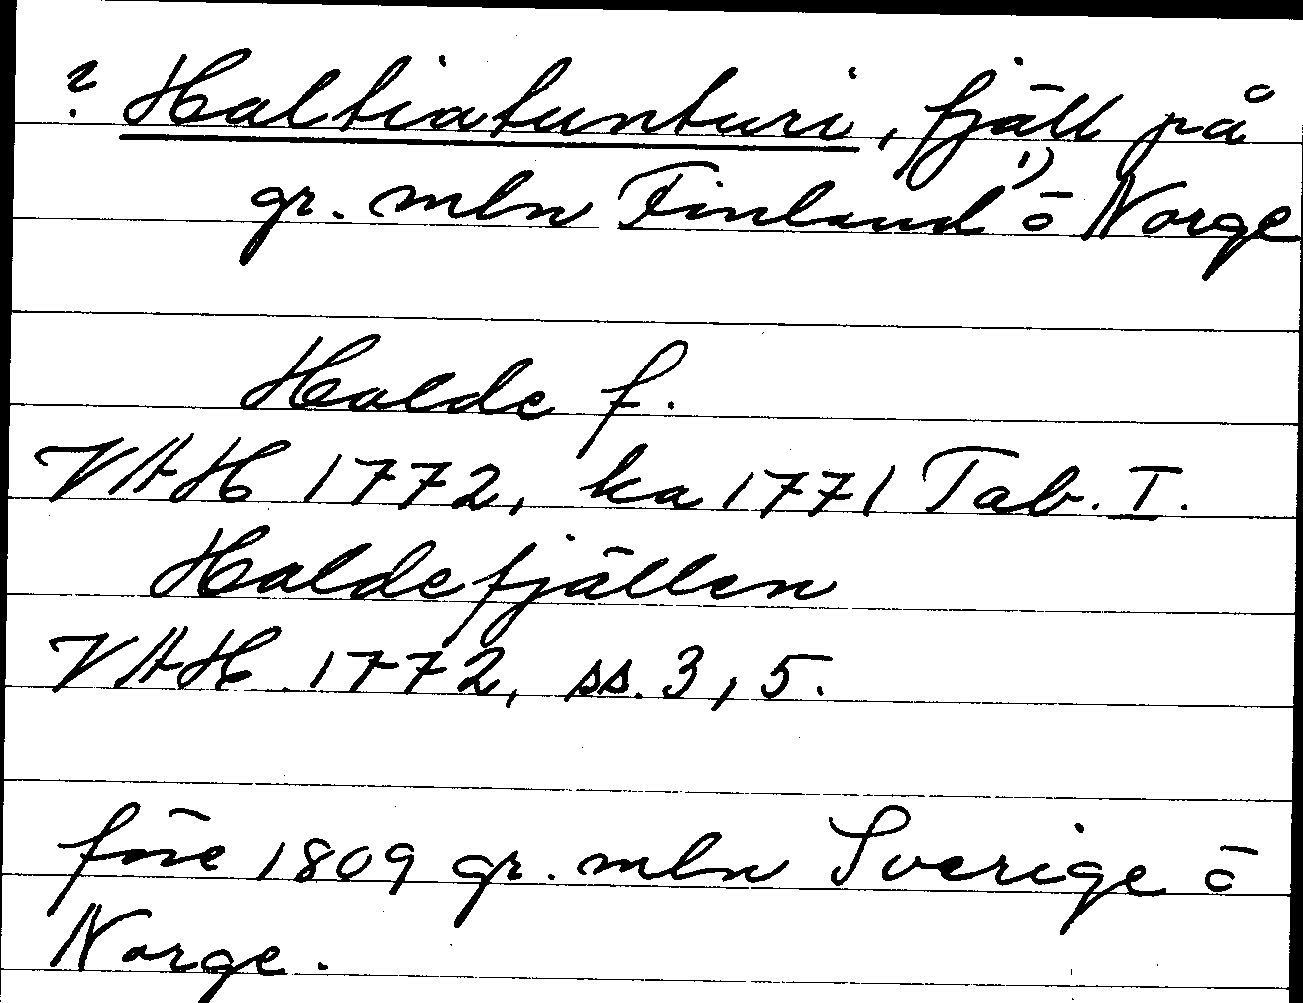 ? Haltiatunturi, fjäll på
gr. mln Finland¹⁾ o Norge
Halde f.
VAH 1772, ka 1771 Tab. I.
Haldefjällen
VAH 1772, ss. 3, 5.
före 1809 gr. mln Sverige o
Norge.